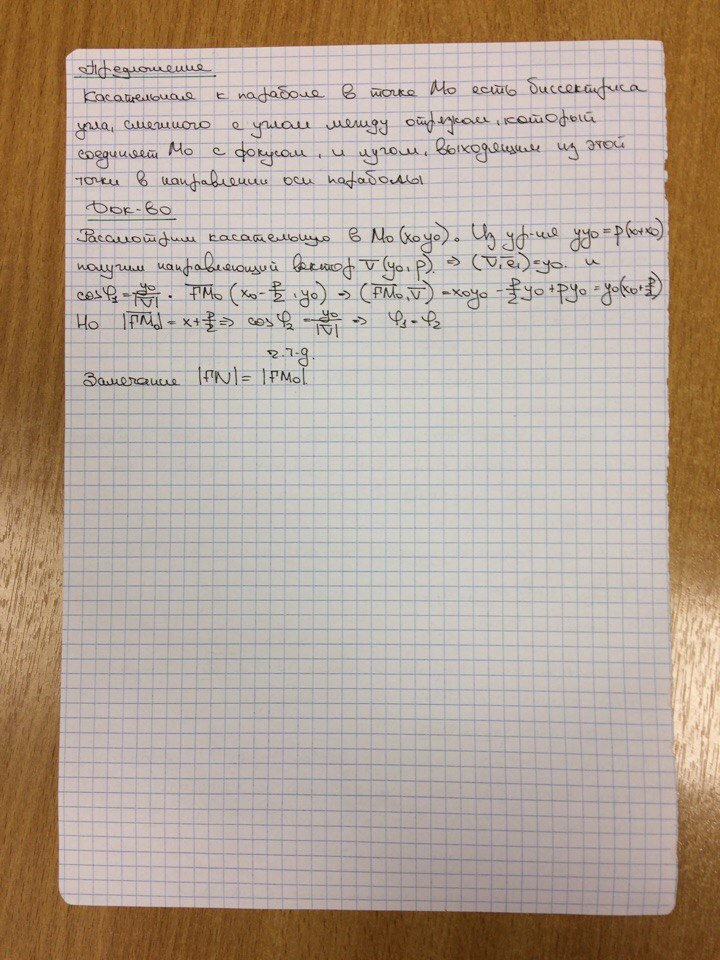 Предложение
Касательная к параболе в точке M₀ есть биссектриса
угла, смежного с углом между отрезком, который
соединяет M₀ с фокусом, и лучом, выходящим из этой
точки в направлении оси параболы
Док-во
Рассмотрим касательную в M₀(x₀y₀). Из ур-ия yy₀=p(x+x₀)
получим направляющий вектор V̅(y₀, p). ⇒ (V̅, e̅₁)=y₀ и
cosφ₁=y₀/|V̅|. F̅M̅₀(x₀-p/2, y₀) ⇒ (F̅M̅₀, V̅) = x₀y₀ - p/2 y₀ + py₀ = y₀(x₀+p/2)
Но |F̅M̅₀| = x+p/2 ⇒ cosφ₂ = y₀/|V̅| ⇒ φ₁=φ₂
ч.т.д.
Замечание |FN|= |FM₀|.